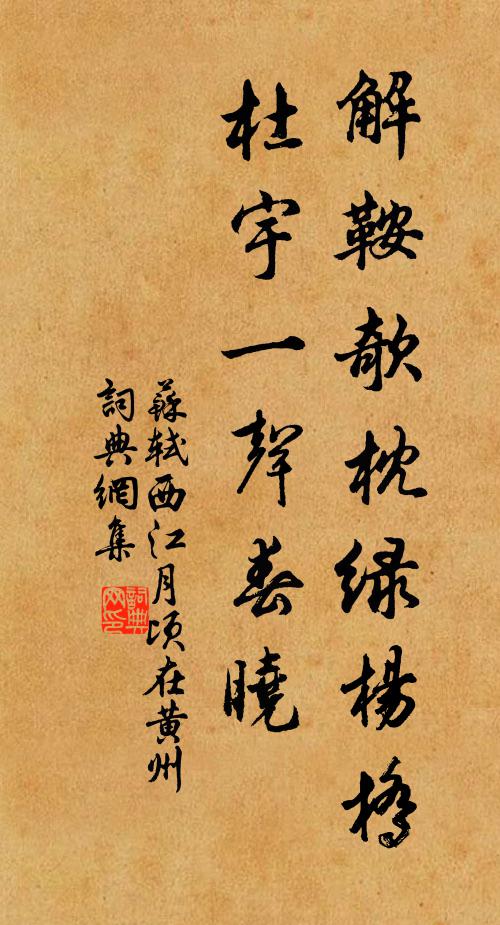 解鞍欹枕緑楊橋
杜宇一聲春曉
蘇軾西江月頃在黃州
詞典網集
詞典网印